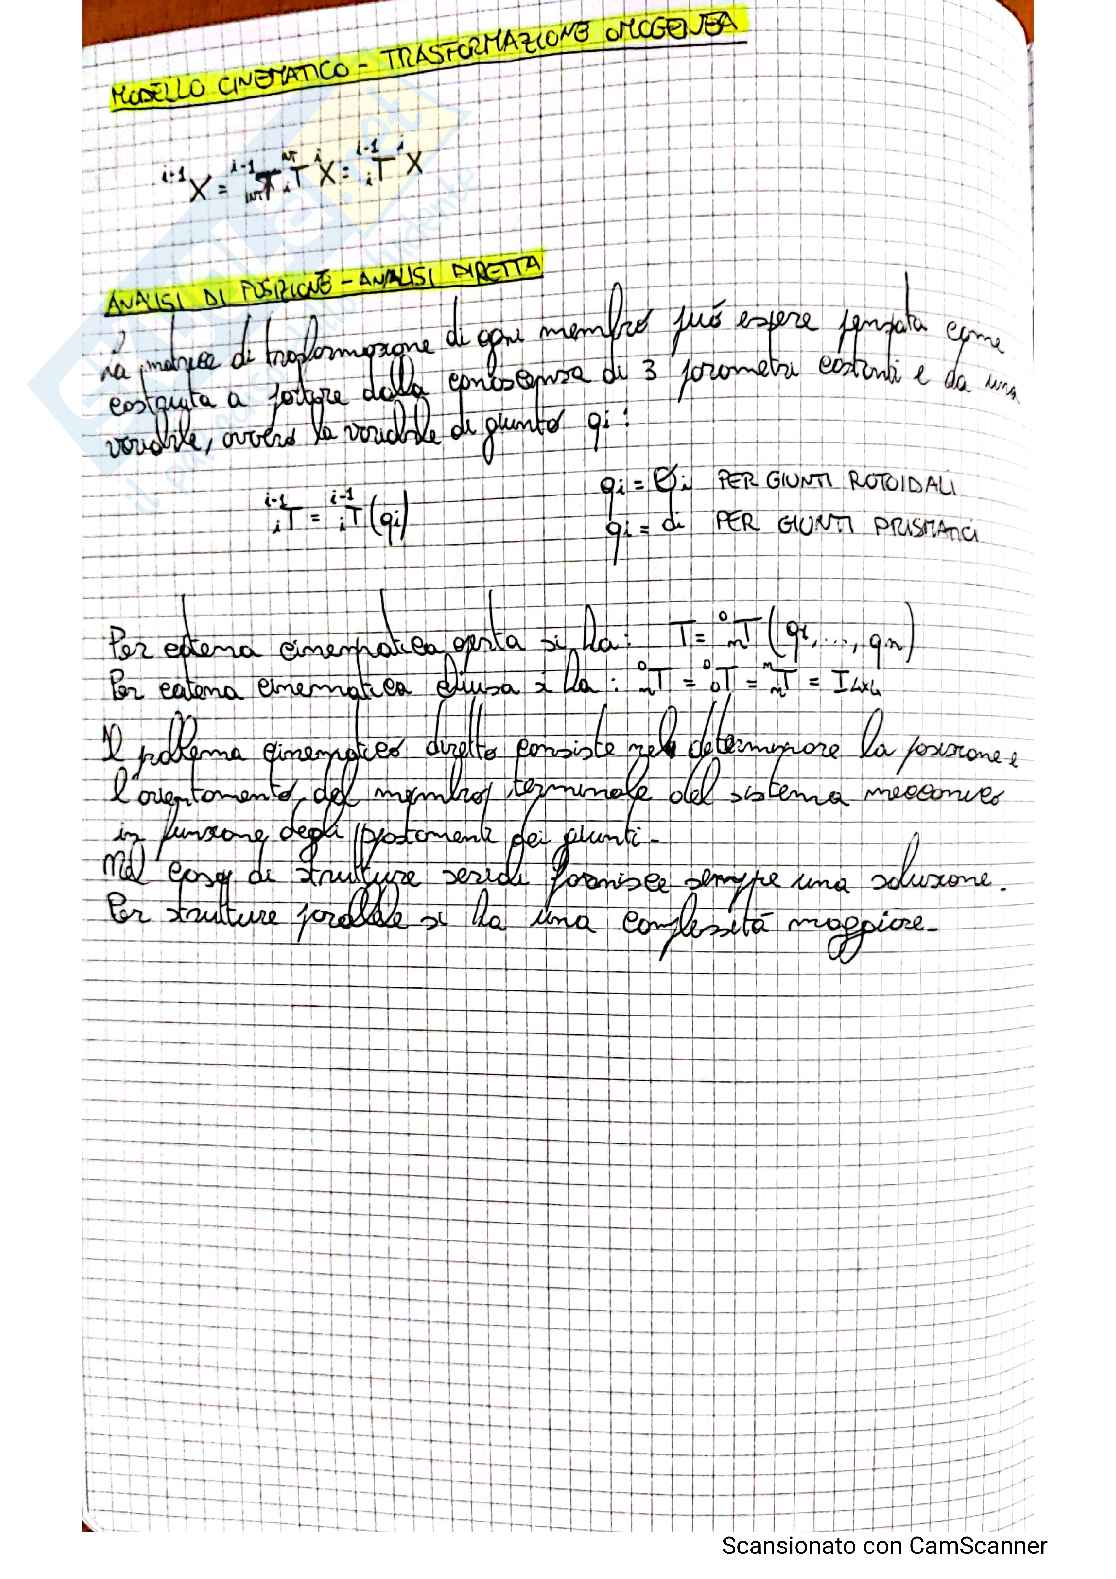 MODELLO CINEMATICO - TRASFORMAZIONE OMOGENEA
i-1X = i-1 INT T INT i T iX = i-1 i T iX
ANALISI DI POSIZIONE - ANALISI DIRETTA
La matrice di trasformazione di ogni membro può essere pensata come
costruita a partire dalla conoscenza di 3 parametri costanti e da una
variabile, ovvero la variabile di giunto qi:
i-1 i T = i-1 i T (qi)
qi = θi PER GIUNTI ROTOIDALI
qi = di PER GIUNTI PRISMATICI
Per catena cinematica aperta si ha: T = 0 n T (qi, ..., qn)
Per catena cinematica chiusa si ha: 0 n T = 0 0 T = n n T = I4x4
Il problema cinematico diretto consiste nel determinare la posizione e
l'orientamento, del membro terminale del sistema meccanico
in funzione degli spostamenti dei giunti -
Nel caso di strutture seriali fornisce sempre una soluzione.
Per strutture parallele si ha una complessità maggiore -
Scansionato con CamScanner